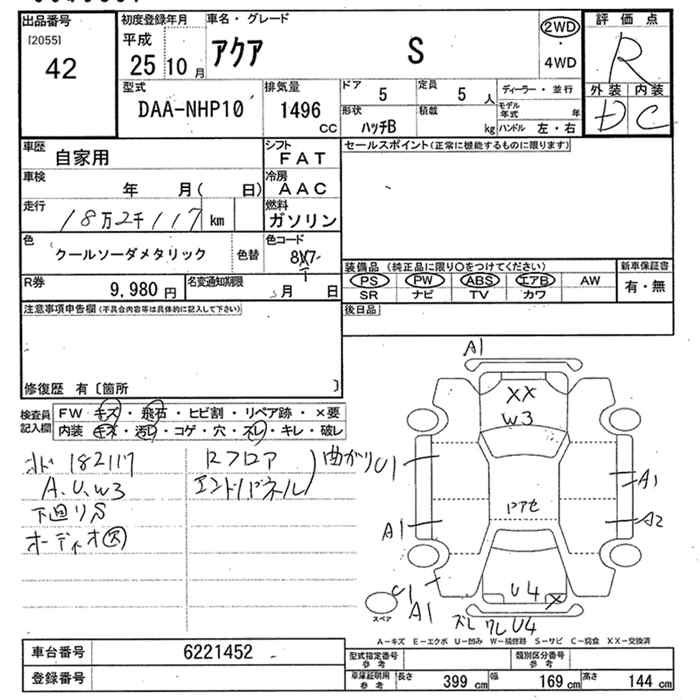 出品番号 初度登録年月 車名・グレード 評価点
[2055]
42
平成
25 10月
アクア S
2WD
・
4WD
R
外装 内装
D C
型式 排気量 ドア 5 定員 5 人 ディーラー・並行
DAA-NHP10 1496 cc
モデル年式 年
形状 ハッチB 積載 kg ハンドル 左・右
車歴 自家用 シフト FAT セールスポイント(正常に機能するものに限ります)
車検 年 月( 日) 冷房 AAC
走行 18万2千117 km 燃料 ガソリン
色 クールソーダメタリック 色替 色コード
R券 9,980 円 名変通知期限 月 日
装備品 (純正品に限り○をつけてください) 新車保証書
PS PW ABS エアB AW 有・無
SR ナビ TV カワ
注意事項申告欄(不具合内容等は具体的に記入して下さい) 後日品
修復歴 有 [箇所 ]
検査員記入欄
FW キズ・飛石・ヒビ割・リペア跡・×要
内装 キズ・汚レ・コゲ・穴・スレ・キレ・破レ
182117
A.U.W3
下回りS
オーディオ欠
Rフロア
エンドパネル
曲がり
A1
XX
W3
U1
A1
A1
A2
ドアセ
U1
A1
U4
X
スペア
ズレ ワレ U4
A-キズ E-エクボ U-凹み W-補修跡 S-サビ C-腐食 XX-交換済
車台番号 6221452
登録番号
型式指定番号 参考 類別区分番号 参考
車庫証明用 参考 長さ 399 cm 幅 169 cm 高さ 144 cm